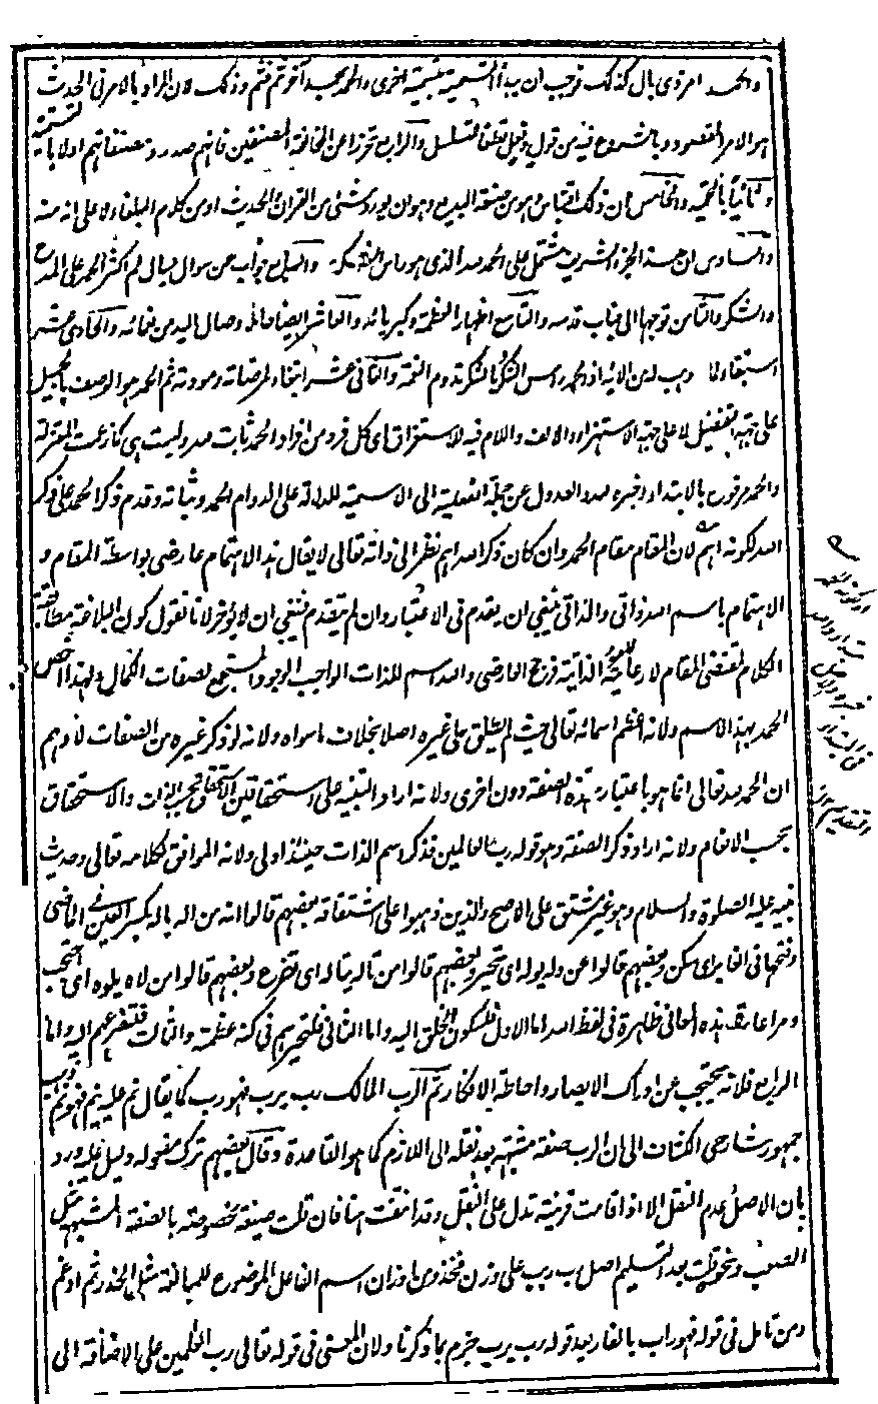 والحمد امر ذى بال كذلك فوجب ان يبدأ التسمية بتسمية اخرى والحمد بحمد آخر ثم وثم وذلك لان المراد بالامر فى الحديث
هو الامر المقصود وبالشروع فيه من قول وفعل قطعا للتسلسل والرابع تحرزا عن المخالفة المصنفين فانهم صدروا مصنفاتهم اولا بالتسمية
وثانيا بالتحميد والخامس ان ذلك اقتباس وهو من صنعة البديع وهو ان يورد شئ من القران او الحديث او من كلام البلغاء لا على انه منه
والسادس ان هذا الجزء الشريف مشتمل على الحمد لله الذى هو راس الشكر والسابع جواب عن سوال لم اكثر الحمد على المدح
والشكر والثامن توجها الى جناب قدسه والتاسع اظهارا لعظمة وكبريائه والعاشر ايضا لما وصال اليه من نعمائه والحادى عشر
استبقاء لما وهب له من الايه اذ الحمد راس الشكر وبالشكر تدوم النعمة والثانى عشر ابتغاء لمرضاته ومودته ثم الحمد هو الوصف بالجميل
على جهة التفضيل لا على جهة الاستهزاء والالف واللام فيه للاستغراق اى كل فرد من افراد الحمد ثابت لله وليست هى كما زعمت المعتزلة
والحمد مرفوع بالابتداء وخبره لله والعدول عن جملة الفعلية الى الاسمية للدلالة على الدوام الحمد وثباته وقدم ذكر الحمد على ذكر
الله لكونه اهم لان المقام مقام الحمد وان كان ذكر الله اهم نظرا الى ذاته تعالى لا يقال هذا الاهتمام عارضى بواسطة المقام و
الاهتمام باسم الله ذاتى والذاتى ينبغى ان يقدم فى الاعتبار وان لم يتقدم فينبغى ان لا يؤخر لانا نقول كون البلاغة مطابقة
الكلام لمقتضى المقام لا رعاية الامور الذاتية فرجح العارضى والله اسم للذات الواجب الوجود المستجمع لصفات الكمال ولهذا اختص
الحمد بهذا الاسم ولانه اعظم اسمائه تعالى حيث لم يطلق على غيره اصلا بخلاف ما سواه ولانه لو ذكر غيره من الصفات لاوهم
ان الحمد لله تعالى انما هو باعتبار هذه الصفة دون اخرى ولانه اراد التنبيه على استحقاقين الاستحقاق بحسب الذات والاستحقاق
بحسب الانعام ولانه اراد ذكر الصفة وهو قوله رب العالمين فذكر اسم الذات حينئذ اولى ولانه الموافق لكلامه تعالى وحديث
نبيه عليه الصلوة والسلام وهو غير مشتق على الاصح والذين ذهبوا على اشتقاقه بعضهم قالوا انه من اله ياله بكسر العين فى الماضى
وفتحها فى الغابر اى سكن وبعضهم قالوا عن وله يوله اى تحير وبعضهم قالوا من تاله يتاله اى تضرع وبعضهم قالوا من لاه يلوه اى احتجب
ومراعات هذه المعانى ظاهرة فى لفظ الله اما الاول فلسكون الخلق اليه واما الثانى فلتحيرهم فى كنه عظمته والثالث فلتضرعهم اليه واما
الرابع فلانه يحتجب عن ادراك الابصار واحاطة الافكار ثم الرب المالك رب يرب فهو رب كما يقال نم عليه ينم فهو نم وذهب
جمهور شارحى الكشاف الى ان الرب صفة مشبهة بعد نقله الى اللازم كما هو القاعدة وقال بعضهم ترك مفعوله دليل عليه ورد
بان الاصل عدم النقل الا اذا قامت قرينة تدل على النقل وقد انتفت ههنا فان قلت صيغة مخصوصة بالصفة المشبهة مثل
الصعب ونحوه قلت بعد التسليم اصل رب ربب على وزن فخذ وهى من اوزان اسم الفاعل الموضوع للمبالغة مثل الحذر ثم ادغم
ومن تامل فى قوله فهو راب بالفاء بعد قوله رب يرب جزم بما ذكرنا ولان المعنى فى قوله تعالى رب العلمين على الاضافة الى